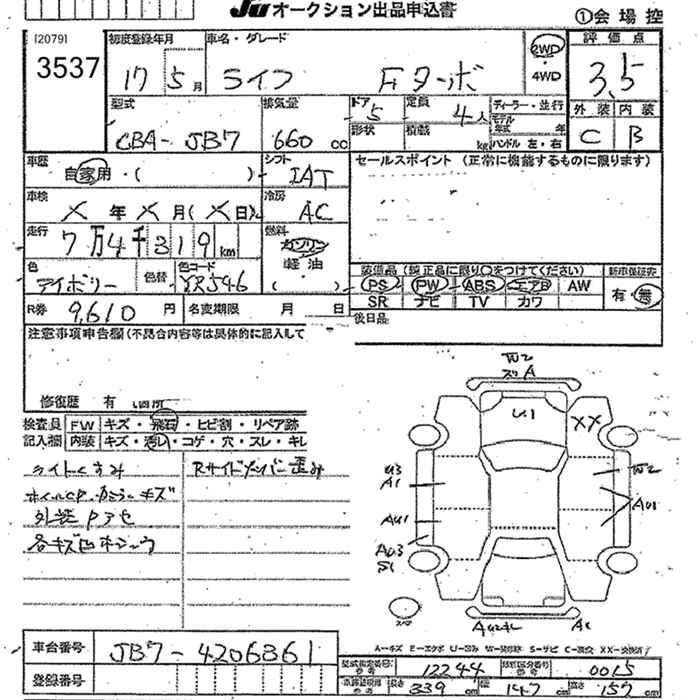 JU オークション出品申込書
①会場控
[2079]
3537
初度登録年月
17 5月
車名・グレード
ライフ Fターボ
2WD
・
4WD
評価点
3.5
型式
CBA-JB7
排気量
660 cc
ドア
5
定員
4人
形状
積載
kg
ディーラー・並行
モデル年式 年
ハンドル 左・右
外装 内装
C B
車歴
自家用・( )
シフト
IAT
セールスポイント (正常に機能するものに限ります)
車検
年 月(日)
冷房
AC
走行
7万4千319km
燃料
ガソリン
軽油
( )
色
アイボリー
色替
色コード
YR546
装備品(純正品に限り○をつけてください)
新車保証書
PS PW ABS エアB AW
有・無
SR ナビ TV カワ
R券
9,610円
名変期限 月 日
後日品
注意事項申告欄(不具合内容等は具体的に記入して
修復歴 有
検査員記入欄
FW キズ・飛石・ヒビ割・リペア跡
内装 キズ・汚レ・コゲ・穴・スレ・キレ
ライトくすみ
Rサイドメンバー歪み
ホイールCP.カバーキズ
外装Pアセ
各キズ凹
W2
A
U1
XX
U3
A1
W2
AU1
AU1
AU3
S1
スペア
A1
A-キズ E-エクボ U-凹み W-補修跡 S-サビ C-腐食 XX-交換済
車台番号
JB7-4206861
登録番号
型式指定番号
12244
類別区分番号
0015
長さ 339cm
幅 147cm
高さ 157cm